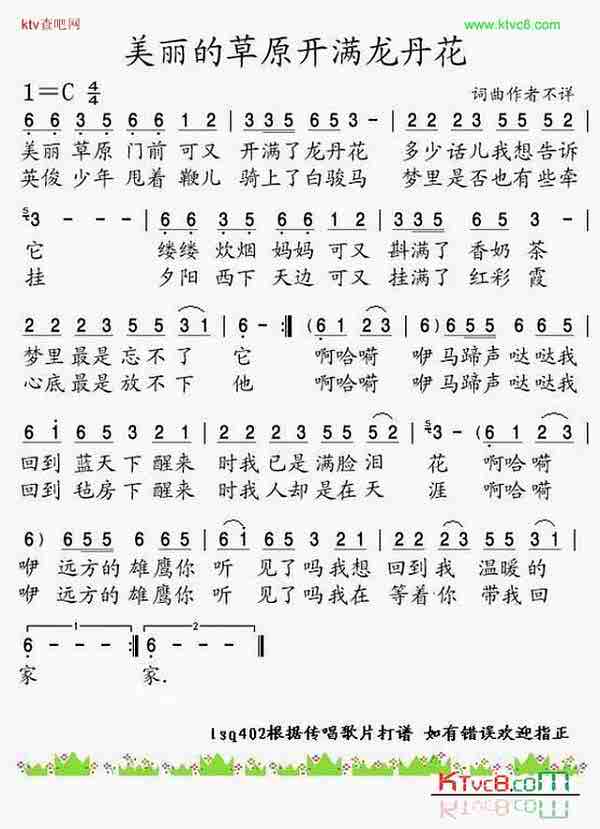 ktv查吧网
www.ktvc8.com
美丽的草原开满龙丹花
1=C 4/4
词曲作者不详
6 6 3 5 6 6 1 2 | 3 3 5 6 5 3 - | 2 2 2 3 5 5 5 5 |
美丽 草原 门前 可又 开满了龙丹花 多少话儿我想告诉
英俊 少年 甩着 鞭儿 骑上了白骏马 梦里是否也有些牵
3 - - - | 6 6 3 5 6 6 1 2 | 3 3 5 6 5 3 - |
它 缕缕 炊烟 妈妈 可又 斟满了 香奶茶
挂 夕阳 西下 天边 可又 挂满了 红彩霞
2 2 2 3 5 5 3 1 | 6 - :‖ (6 1 2 3 | 6) 6 5 5 6 6 5 |
梦里最是忘不了 它 啊哈嗬 咿马蹄声哒哒我
心底最是放不下 他 啊哈嗬 咿马蹄声哒哒我
6 1 6 5 3 2 1 | 2 2 3 5 5 5 2 | 3 - (6 1 2 3 |
回到 蓝天下醒来 时我已是满脸泪 花 啊哈嗬
回到 毡房下醒来 时我人却是在天 涯 啊哈嗬
6) 6 5 5 6 6 5 | 6 1 3 2 3 3 | 2 2 2 3 3 |
咿 远方的雄鹰你 听 见了吗我想 回到我 温暖的
咿 远方的雄鹰你 听 见了吗我在 等着你 带我回
1 2
6 - - - :‖ 6 - - - ‖
家 家.
lsq402根据传唱歌片打谱 如有错误欢迎指正
KTvc8.com